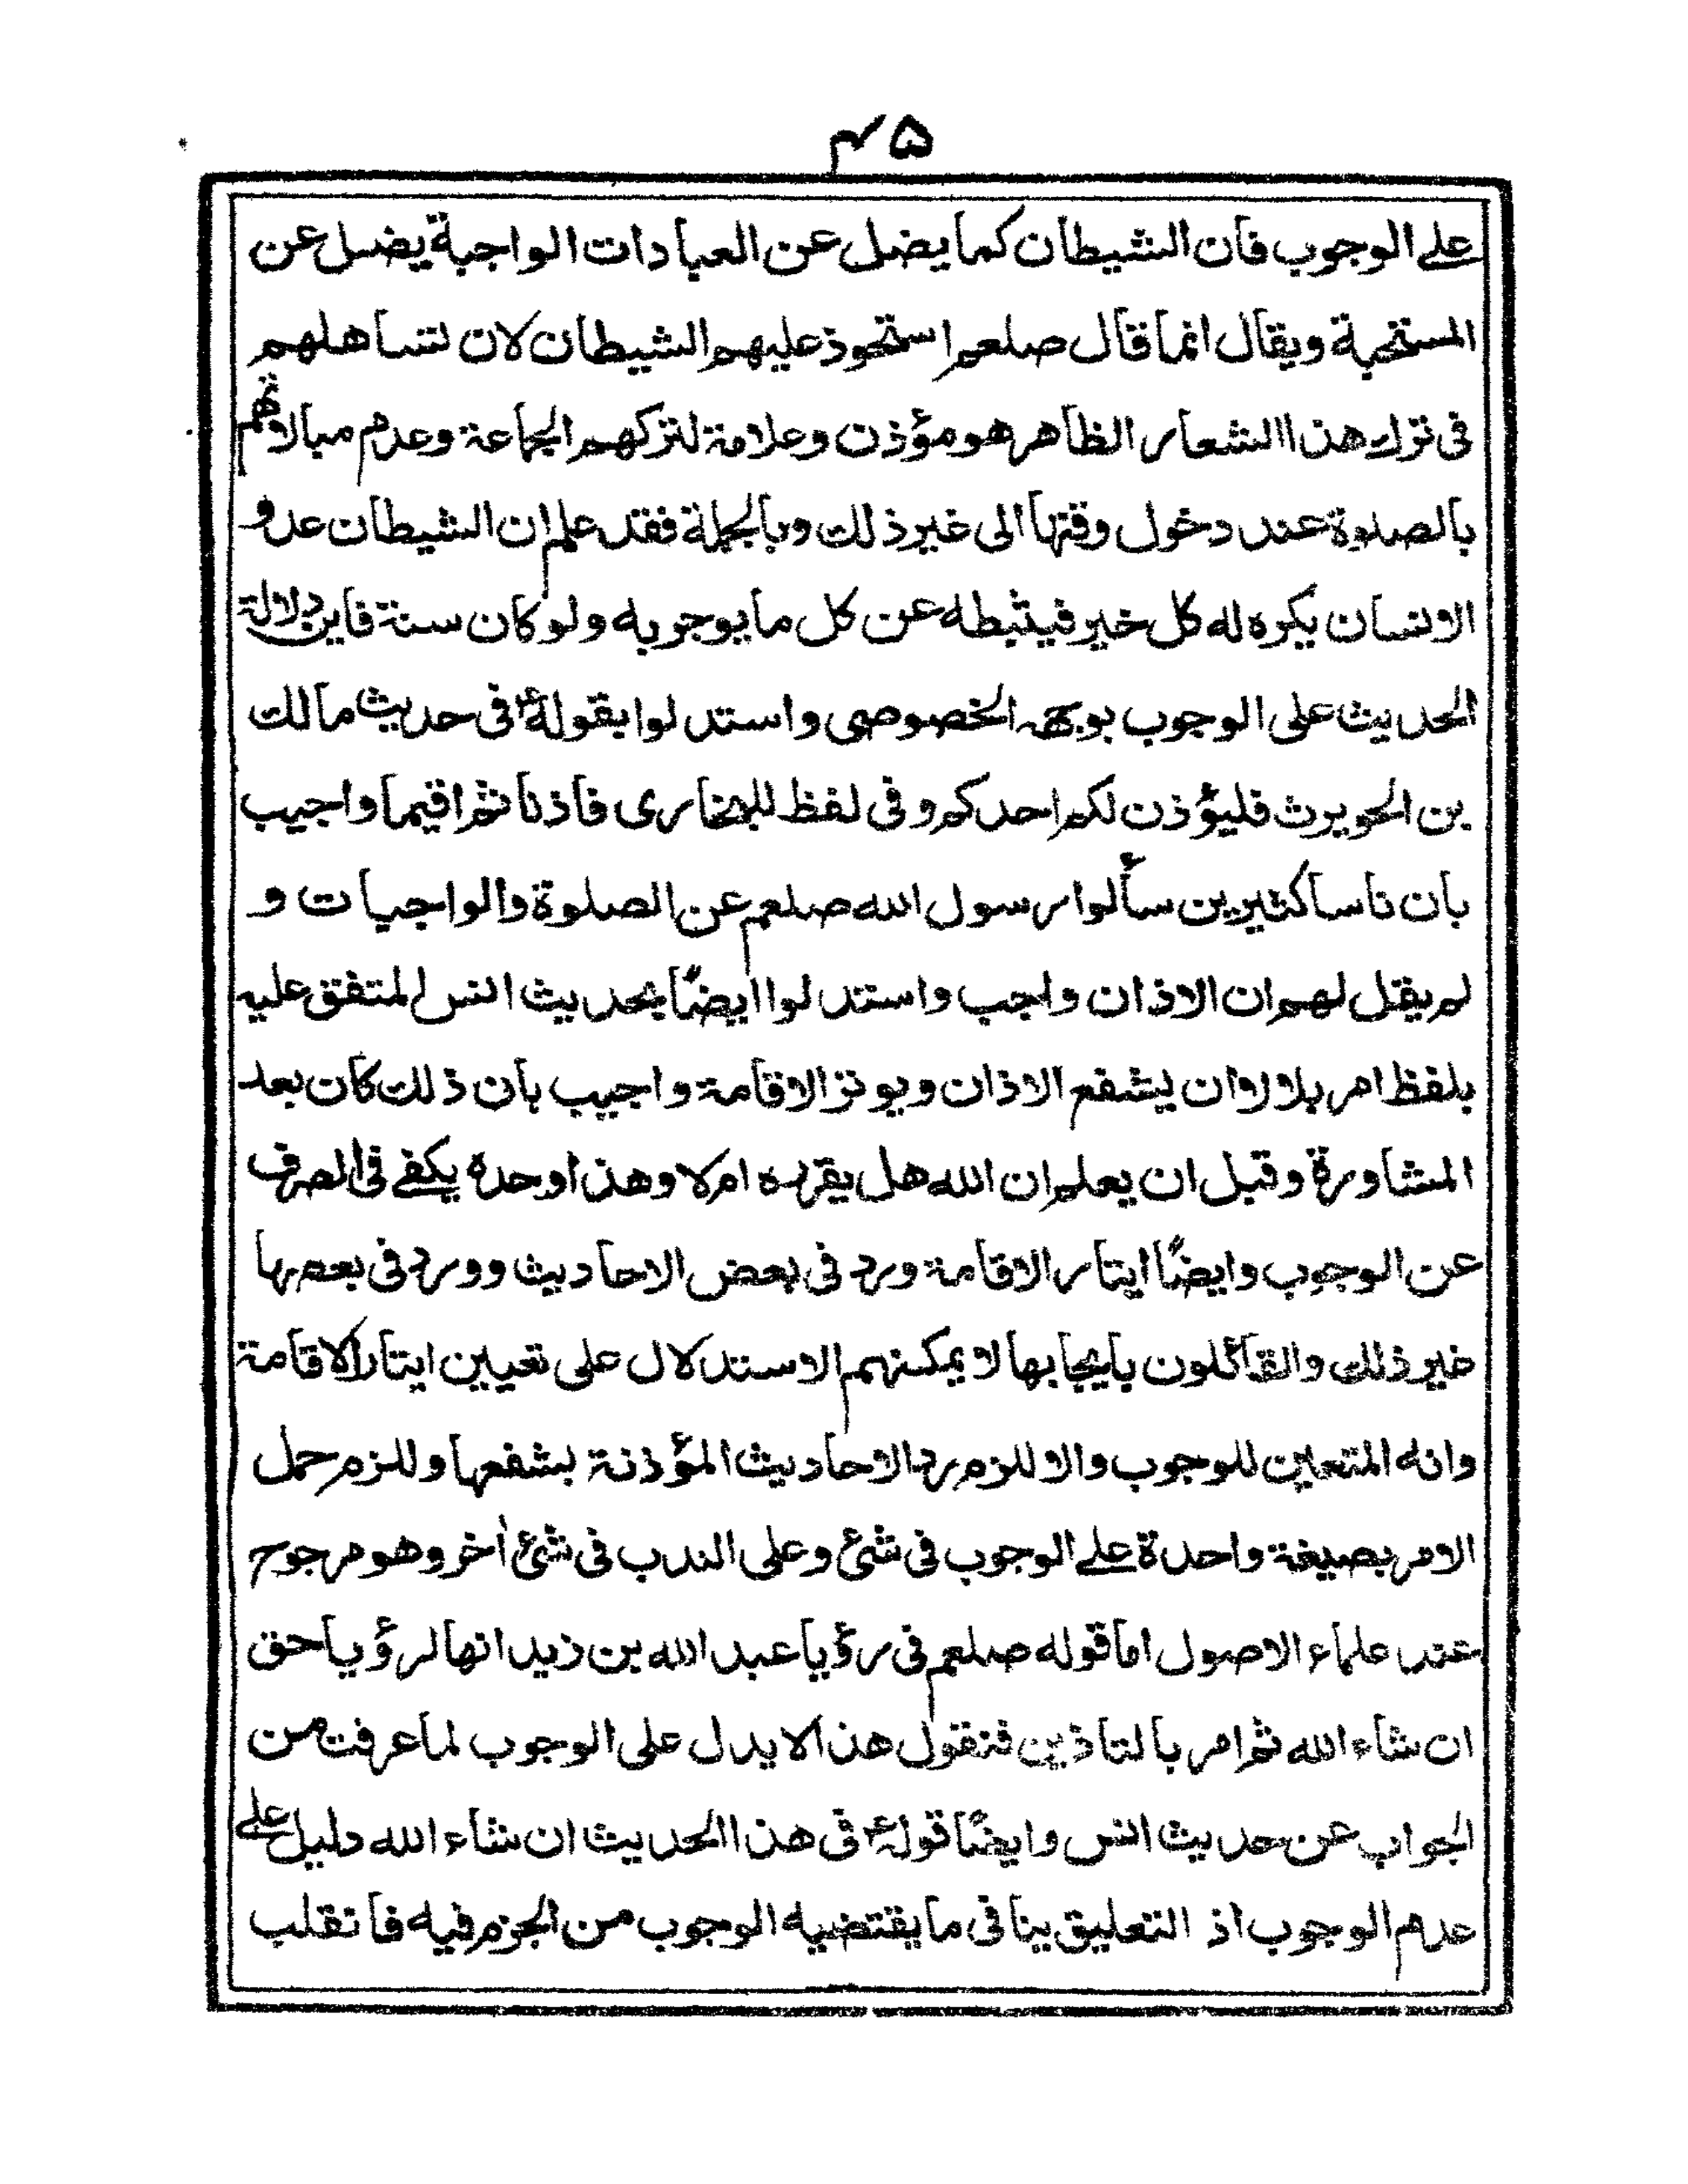 ۵۴
على الوجوب فان الشيطان كما يضل عن العبادات الواجبة يضل عن
المستحبة ويقال انما قال صلعم استحوذ عليهم الشيطان لان تساهلهم
فى ترك هذا الشعار الظاهر هو مؤذن وعلامة لتركهم الجماعة وعدم مبالاتهم
بالصلوة عند دخول وقتها الى غير ذلك وبالجملة فقد علم ان الشيطان عدو
الانسان يكره له كل خير فيثبطه عن كل ما يوجر به ولو كان سنة فاين دلالة
الحديث على الوجوب بوجهه الخصوصى واستدلوا بقولهؑ فى حديث مالك
بن الحويرث فليؤذن لكم احدكم وفى لفظ للبخارى فاذنا ثم اقيما واجيب
بان ناسا كثيرين سألوا رسول الله صلعم عن الصلوة والواجبات و
لم يقل لهم ان الاذان واجب واستدلوا ايضًا بحديث انس المتفق عليه
بلفظ امر بلالا ان يشفع الاذان ويوتر الاقامة واجيب بان ذلك كان بعد
المشاورة وقبل ان يعلم ان الله هل يقرره ام لا وهذا وحده يكفے فى الصرف
عن الوجوب وايضًا ايتار الاقامة ورد فى بعض الاحاديث وورد فى بعضها
غير ذلك والقائلون بايجابها لا يمكنهم الاستدلال على تعيين ايتار الاقامة
وانه المتعين للوجوب والا للزم رد الاحاديث المؤذنة بشفعها وللزم حمل
الامر بصيغة واحدة علے الوجوب فى شئ وعلى الندب فى شئ اٰخر وهو مرجوح
عند علماء الاصول اما قوله صلعم فى رؤيا عبد الله بن زيد انها لرؤيا حق
ان شاء الله ثم امر بالتاذين فنقول هذا لا يدل على الوجوب لما عرفت من
الجواب عن حديث انس وايضًا قولهؑ فى هذا الحديث ان شاء الله دليل علے
عدم الوجوب اذ التعليق ينافى ما يقتضيه الوجوب من الجزم فيه فانقلب